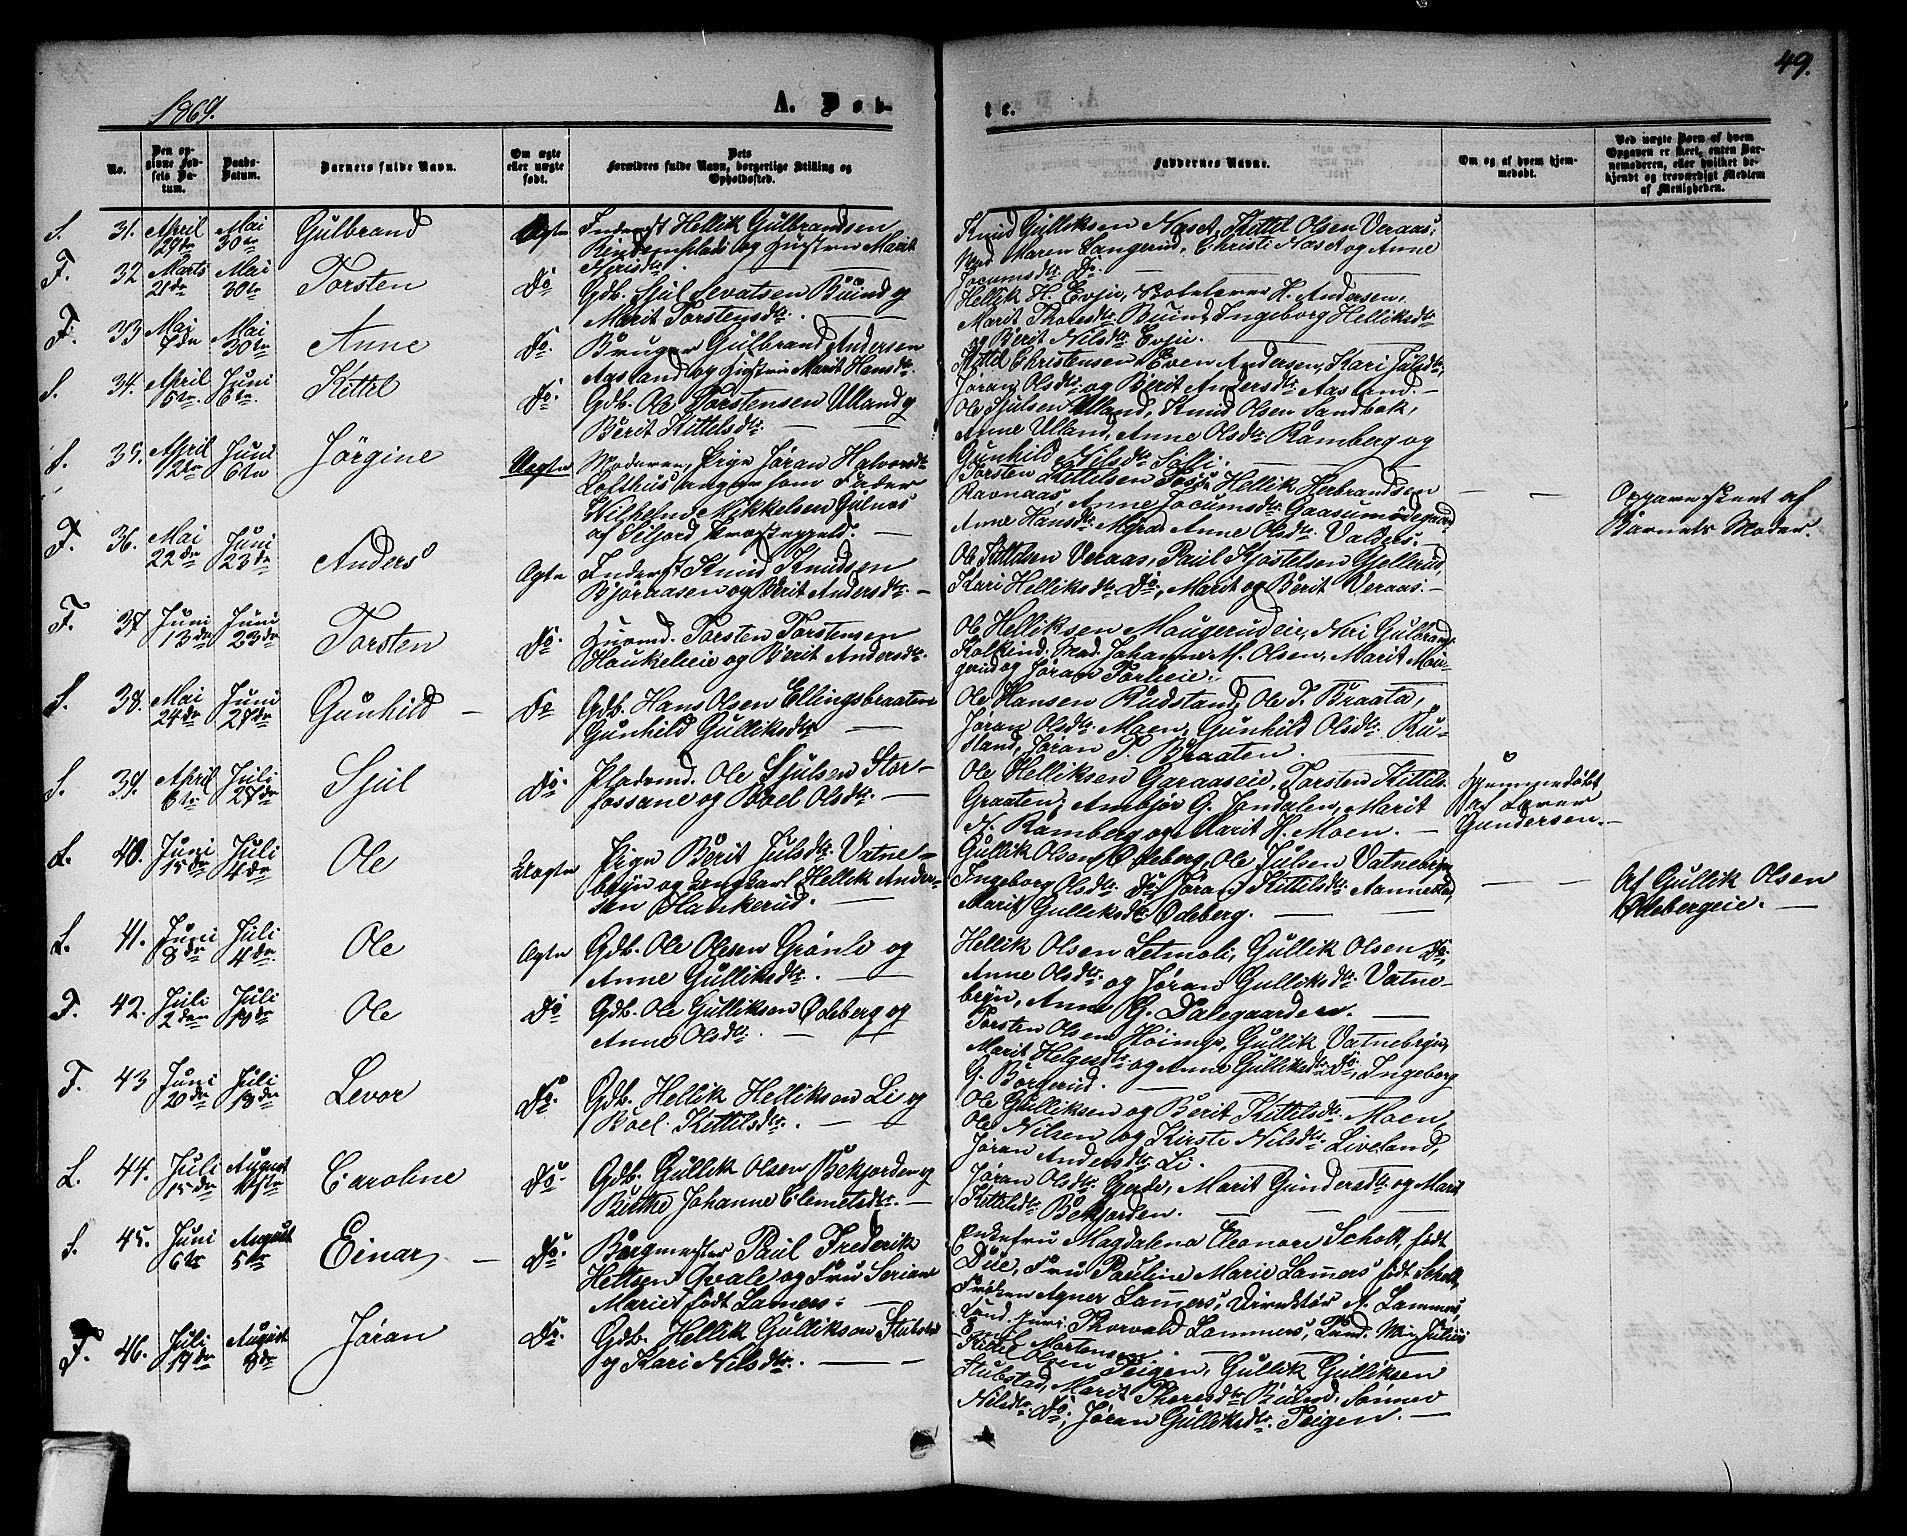 1869.
A. Døb-
te.
49.
No.
Den opgivne Fødsels Datum.
Daabs-Datum.
Barnets fulde Navn.
Om ægte eller uægte født.
Forældres fulde Navn, borgerlige Stilling og Opholdssted.
Faddernes Navne.
Om og af hvem hjemmedøbt.
Ved uægte Børn af hvem Opgaven er skeet, enten Barnemoderen, eller hvilket bekjendt og troværdigt Medlem af Menigheden.
S. 31. April 29de Mai 30te Gulbrand Ægte Inderst Hellik Gulbrandsen
og Hustru Marit
Knud Gulliksen Naset, Kittil Olsen Veraas,
Mad. Maren Langerud, Christi Naset og Anne
Jocumsdtr. Do.
F. 32 Marts 21de Mai 30te Torsten Do Gdb. Sjul Levalsen Buind og
Marit Torstensdtr.
Hellik H. Evju, H. Andersen,
Marit Thoresdtr. Buind, Ingeborg Helliksdtr.
og Berit Nilsdtr. Evju.
F. 33 Mai 7de Mai 30te Anne Do. Bruger Gulbrand Andersen
Aasland og Hustru Marit Hansdtr.
Kittil Christensen, Even Andersen, Kari Julsdtr.,
Jøran Olsdtr. og Berit Andersdtr. Aasland.
S. 34. April 15te. Juni 6te. Kittil Do. Gdb. Ole Torstensen Ulland og
Berit Kittelsdtr.
Ole Sjulsen Ulland, Knud Olsen Sandbæk,
Anne Ulland, Anne Olsdtr. Ramberg og
Gunhild Nilsdtr. Solli.
S. 35. April 12te Juni 6te Jørgine Uægte Moderen, Pige Jøran Halvorsdtr.
Lofthus angav som Fader
Wilhelm Mikkelsen Gulnæs
af Siljord Præstegjeld.
Torsten Kittelsen Fossi, Hellik Herbrandsen
Ravnaas, Anne Jocumsdtr. Gaasumødegaard
Anne Hansdtr. Myra, Anne Olsdtr. Valders.
Opgave skeet af
Barnets Moder.
F. 36. Mai 22de Juni 23de Anders Ægte Inderst Knud Knudsen
Bjøraasen og Berit Andersdtr.
Ole Kittelsen Veraas, Paul Kjøstelsen Gjellerud,
Kari Helliksdtr. Do, Marit og Berit Veraas.
F. 37 Juni 13de Juni 23de Torsten Do. Husmd. Torsten Torstensen
Haukelieie og Berit Andersdtr.
Ole Helliksen Mougerudeie, Niri Gulbrands.
Kolkind, Mad. Johanne M. Olsen, Marit Mou-
gerud og Jøran Forlieie.
S. 38. Mai 24de Juni 27de Gunhild Do Gdb. Hans Olsen Ellingsbraaten
Gunhild Gulliksdtr.
Ole Hansen Rudstand, Ole T. Braata,
Jøran Olsdtr. Moen, Gunhild Olsdtr. Ru-
stand, Jøran P. Braaten.
S. 39. April 6te Juli 27de Sjul Do. Pladsmd. Ole Sjulsen Stor-
fossane og Boel Olsdtr.
Ole Helliksen Ggraaseie, Torsten Kittils.
Graaten, Ambjør G. Jondalen, Marit
N. Ramberg og Marit H. Moen.
Hjemmedøbt
af Lærer
Gundersen.
L. 40. Juni 15de Juli 4de Ole Uægte Pige Berit Julsdtr. Vatne-
bryn og Ungkarl Hellik Ander-
sen Blankerud.
Gullik Olsen Ødeberg, Ole Julsen Vatnebryn
Ingeborg Olsdtr. Do, Jøran Kittilsdtr. Aannestad
Marit Gulliksdtr. Ødeberg.
Af Gullik Olsen
Ødebergeie.
L. 41. Juni 8de Juli 4de Ole Ægte Gdb. Ole Olsen Grønli og
Anne Gulliksdtr.
Hellik Olsen Letmoli, Gullik Olsen Do.
Anne Olsdtr. og Jøran Gulliksdtr. Vatne-
bryn, Anne G. Dalegaarden.
F. 42. Juli 2den Juli 19de Ole Do Gdb. Ole Gulliksen Ødeberg og
Anne Olsdtr.
Torsten Olsen, Gullik Vatnebryn,
Marit Helgesdtr. og Anne Gulliksdtr. Do, Ingeborg
G. Borgerud.
F. 43 Juni 20de Juli 18de Levor Do. Gdb. Hellik Helliksen Li og
Boel Kittelsdtr.
Ole Gulliksen og Berit Kittelsdtr. Moen,
Ole Nilsen og Kirsti Nilsdtr. Liveland,
Jøran Andersdtr. Li.
L. 44. Juli 15de August 1ste Caroline Do. Gdb. Gullik Olsen Bekjorden og
Birthe Johanne Clemetsdtr.
Jøran Olsdtr. Gerde, Marit Gundersdtr. og Marit
Kittelsdtr. Bekjorden.
S. 45. Juni 6te August 5te Einar Do. Bergmester Paul Frederik
Hettsen Qvale og Fru Serine
Marie født Lamers.
Enkefru Magdalena Eleonore Scholt, født
Due, Fru Pauline Marie Lamers født Scholt,
Frøken Agnes Lamers, Direktør A. Lammers,
Cand. juri. Thorvald Lammers, Cand. Min. Julius
Mortensen.
F. 46. Juli 19de August 8de Jøran Do. Gdb. Hellik Gulliksen Stubstad
og Kari Nilsdtr.
Kittil Olsen Teigen, Gullik Gulliksen
Stubstad, Marit Thoresdtr. Buind, Sønnev
Nilsdtr. Do, Jøran Gulliksdtr. Teigen.